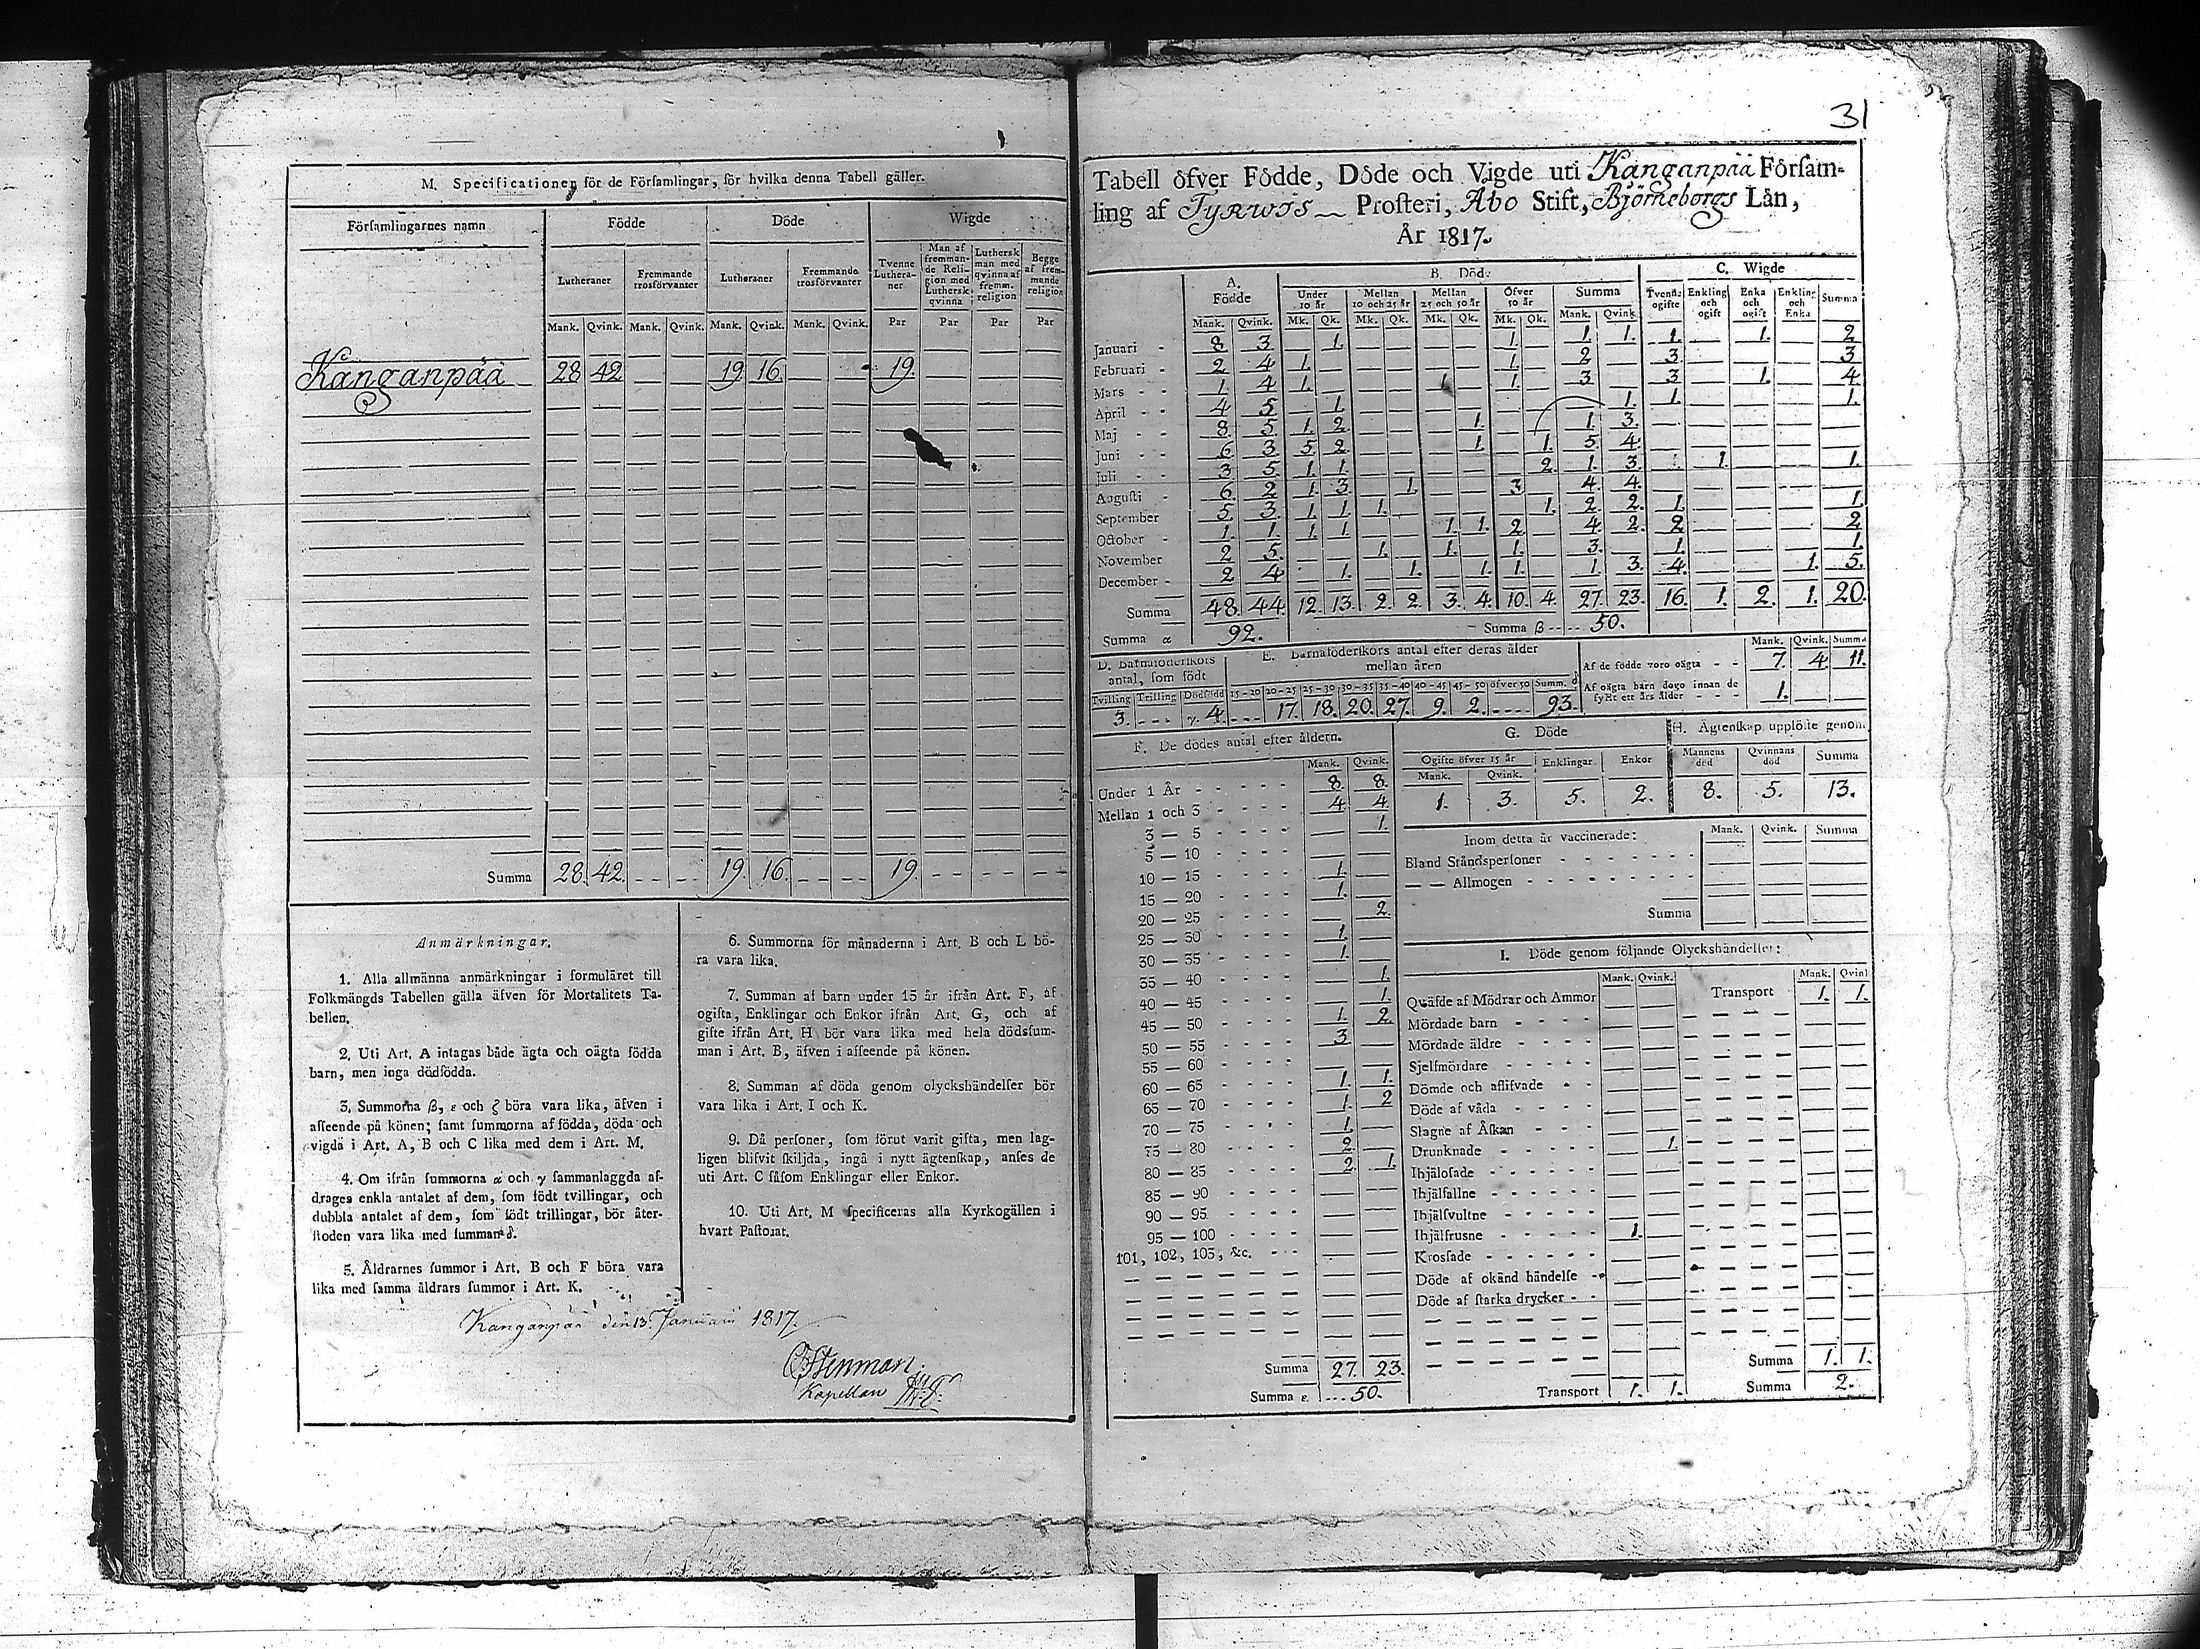 M. Specificationen för de Församlingar, för hvilka denna Tabell gäller.
Församlingarnes namn | Födde | Döde | Wigde
Lutheraner | Fremmande trosförvanter | Lutheraner | Fremmande trosförvanter | Tvenne Lutheraner | Man af fremmande Religion med Luthersk qvinna | Luthersk man med qvinna af fremm. religion | Begge af fremmande religion
Mank. Qvink. Mank. Qvink. Mank. Qvink. Mank. Qvink. Par Par Par Par
Kanganpää 28 42 — — 19. 16. — — 19. — — —
Summa 28. 42. - - - - 19. 16. - - - - 19. - - - - - -
Anmärkningar.
1. Alla allmänna anmärkningar i formuläret till
Folkmängds Tabellen gälla äfven för Mortalitets Ta-
bellen.
2. Uti Art. A intagas både ägta och oägta födda
barn, men inga dödfödda.
3. Summorna β, ε och ζ böra vara lika, äfven i
afseende på könen; samt summorna af födda, döda och
vigda i Art. A, B och C lika med dem i Art. M.
4. Om ifrån summorna α och γ sammanlaggda af-
drages enkla antalet af dem, som födt tvillingar, och
dubbla antalet af dem, som födt trillingar, bör åter-
stoden vara lika med summan δ.
5. Åldrarnes summor i Art. B och F böra vara
lika med samma åldrars summor i Art. K.
6. Summorna för månaderna i Art. B och L bö-
ra vara lika.
7. Summan af barn under 15 år ifrån Art. F, af
ogifta, Enklingar och Enkor ifrån Art. G, och af
gifte ifrån Art. H bör vara lika med hela dödssum-
man i Art. B, äfven i afseende på könen.
8. Summan af döda genom olyckshändelser bör
vara lika i Art. I och K.
9. Då personer, som förut varit gifta, men lag-
ligen blifvit skiljda, ingå i nytt ägtenskap, anses de
uti Art. C såsom Enklingar eller Enkor.
10. Uti Art. M specificeras alla Kyrkogällen i
hvart Pastorat.
Kanganpää den 13. Januarii 1817.
Östenman
Kapellan
31
Tabell öfver Födde, Döde och Vigde uti Kanganpää Församling af Tyrwis — Prosteri, Åbo Stift, Björneborgs Län,
År 1817.
A. Födde | B. Döde | C. Wigde
Under 10 år | Mellan 10 och 25 år | Mellan 25 och 50 år | Öfver 50 år | Summa | Tvenne ogifte | Enkling och ogift | Enka och ogift | Enkling och Enka | Summa
Mank. Qvink. Mk. Qk. Mk. Qk. Mk. Qk. Mk. Qk. Mank. Qvink
Januari - 8 3 — 1. — — — — 1. — 1. 1. 1. — 1. — 2
Februari - 2 4 1. — — — — — 1. — 2 — 3 — — — 3
Mars - - 1. 4 1. — — — 1. — 1. — 3 — 3 — 1. — 4.
April - - 4 5 — 1. — — — — — — — 1. 1. — — — 1.
Maj - - 8. 5 1. 2 — — — 1. — — 1. 3. — — — — —
Juni - - 6 3 5 2 — — — 1. — 1. 5 4 — — — — —
Juli - - 3 5 1. 1. — — — — — 2. 1. 3. — 1. — — 1.
Augusti - 6. 2 1. 3. — 1. — — 3 — 4 4. — — — — —
September 5. 3. 1. 1. 1. — — — — 1. 2. 2. 1. — — — 1.
October - 1. 1. 1. 1. — — 1. 1. 2 — 4. 2. 2 — — — 2
November 2 5. — — 1. — 1. — 1. — 3. — 1. — — — 1.
December - 2 4 — 1. — 1. — 1. 1. — 1. 3. 4. — — 1. 5.
Summa 48. 44. 12. 13. 2. 2. 3. 4. 10. 4. 27. 23. 16. 1. 2. 1. 20.
Summa α 92. Summa β - - - - 50.
D. Barnaföderskors antal, som födt
Tvilling Trilling Dödfödd
3. - - - γ. 4.
E. Barnaföderskors antal efter deras ålder mellan åren
15-20 20-25 25-30 30-35 35-40 40-45 45-50 öfver 50 Summ. δ
- - - 17. 18. 20. 27. 9. 2. - - - - 93.
Mank. Qvink. Summa
Af de födde voro oägta - - 7. 4 11.
Af oägta barn dogo innan de fyllt ett års ålder - - - 1. — —
F. De dödes antal efter åldern.
Mank. Qvink.
Under 1 År - - - - - 8. 8.
Mellan 1 och 3 - - - - 4 4
3 — 5 - - - - — 1.
5 — 10 - - - - — —
10 — 15 - - - - 1. —
15 — 20 - - - - 1. —
20 — 25 - - - - — 2.
25 — 30 - - - - 1. —
30 — 35 - - - - 1. —
35 — 40 - - - - — 1.
40 — 45 - - - - — 1.
45 — 50 - - - - 1. 2.
50 — 55 - - - - 3 —
55 — 60 - - - - — —
60 — 65 - - - - 1. 1.
65 — 70 - - - - 1. 2
70 — 75 - - - - 1. —
75 — 80 - - - - 2. —
80 — 85 - - - - 2 1.
85 — 90 - - - - — —
90 — 95 - - - - — —
95 — 100 - - - - — —
101, 102, 103, &c. - - — —
Summa 27. 23.
Summa ε. - - - 50.
G. Döde
Ogifte öfver 15 år | Enklingar | Enkor
Mank. Qvink.
1. 3. 5. 2.
H. Ägtenskap upplöste genom
Mannens död | Qvinnans död | Summa
8. 5. 13.
Inom detta år vaccinerade: Mank. Qvink. Summa
Bland Ståndspersoner - - - - - - -
— — Allmogen - - - - - - - -
Summa
I. Döde genom följande Olyckshändelser:
Mank. Qvink. Mank. Qvink
Qväfde af Mödrar och Ammor — — Transport 1. 1.
Mördade barn - - - -
Mördade äldre - - - - -
Sjelfmördare - - - - -
Dömde och aflifvade - -
Döde af våda - - - -
Slagne af Åskan - - -
Drunknade - - - - - — 1.
Ihjälosade - - - - -
Ihjälfallne - - - - - -
Ihjälsvultne - - - - -
Ihjälfrusne - - - - - 1. —
Krossade - - - - - -
Döde af okänd händelse -
Döde af starka drycker - -
Transport 1. 1.
Summa 1. 1.
Summa 2.